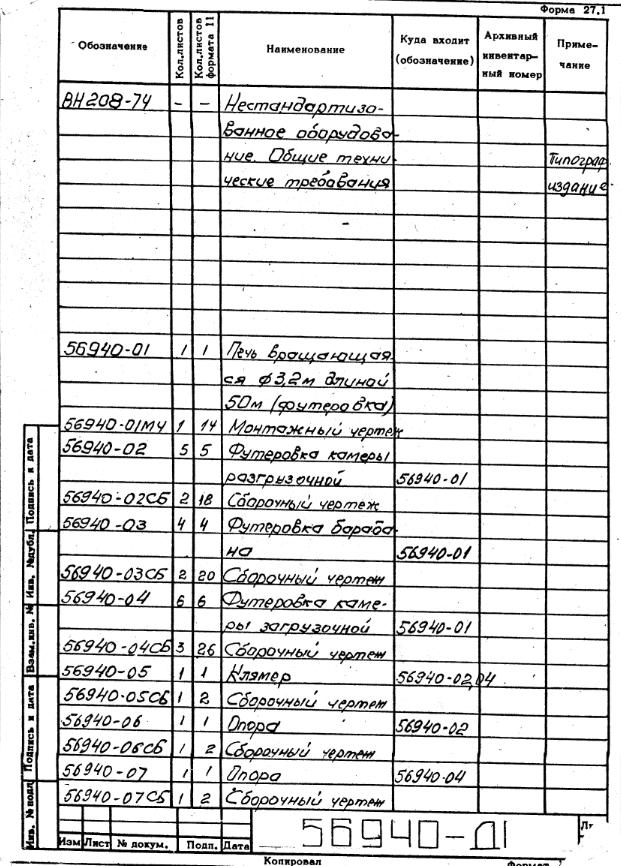 Форма 27.1
Обозначение Кол.листов Кол.листов формата 11 Наименование Куда входит (обозначение) Архивный инвентар- ный номер Приме- чание
ВН208-74 - - Нестандартизо-
ванное оборудова-
ние. Общие техни- Типограф.
ческие требования издание
56940-01 1 1 Печь вращающая
ся ф3,2м длиной
50м (футеровка)
56940-01МЧ 1 14 Монтажный чертеж
56940-02 5 5 Футеровка камеры
разгрузочной 56940-01
56940-02СБ 2 18 Сборочный чертеж
56940-03 4 4 Футеровка бараба-
на 56940-01
56940-03СБ 2 20 Сборочный чертеж
56940-04 6 6 Футеровка каме-
ры загрузочной 56940-01
56940-04СБ 3 26 Сборочный чертеж
56940-05 1 1 Клямер 56940-02,04
56940-05СБ 1 2 Сборочный чертеж
56940-06 1 1 Опора 56940-02
56940-06СБ 1 2 Сборочный чертеж
56940-07 1 1 Опора 56940-04
56940-07СБ 1 2 Сборочный чертеж
Инв. № подл Подпись и дата Взам.инв. № Инв. №дубл. Подпись и дата
Изм Лист № докум. Подп. Дата
56940-Д1
Копировал Формат